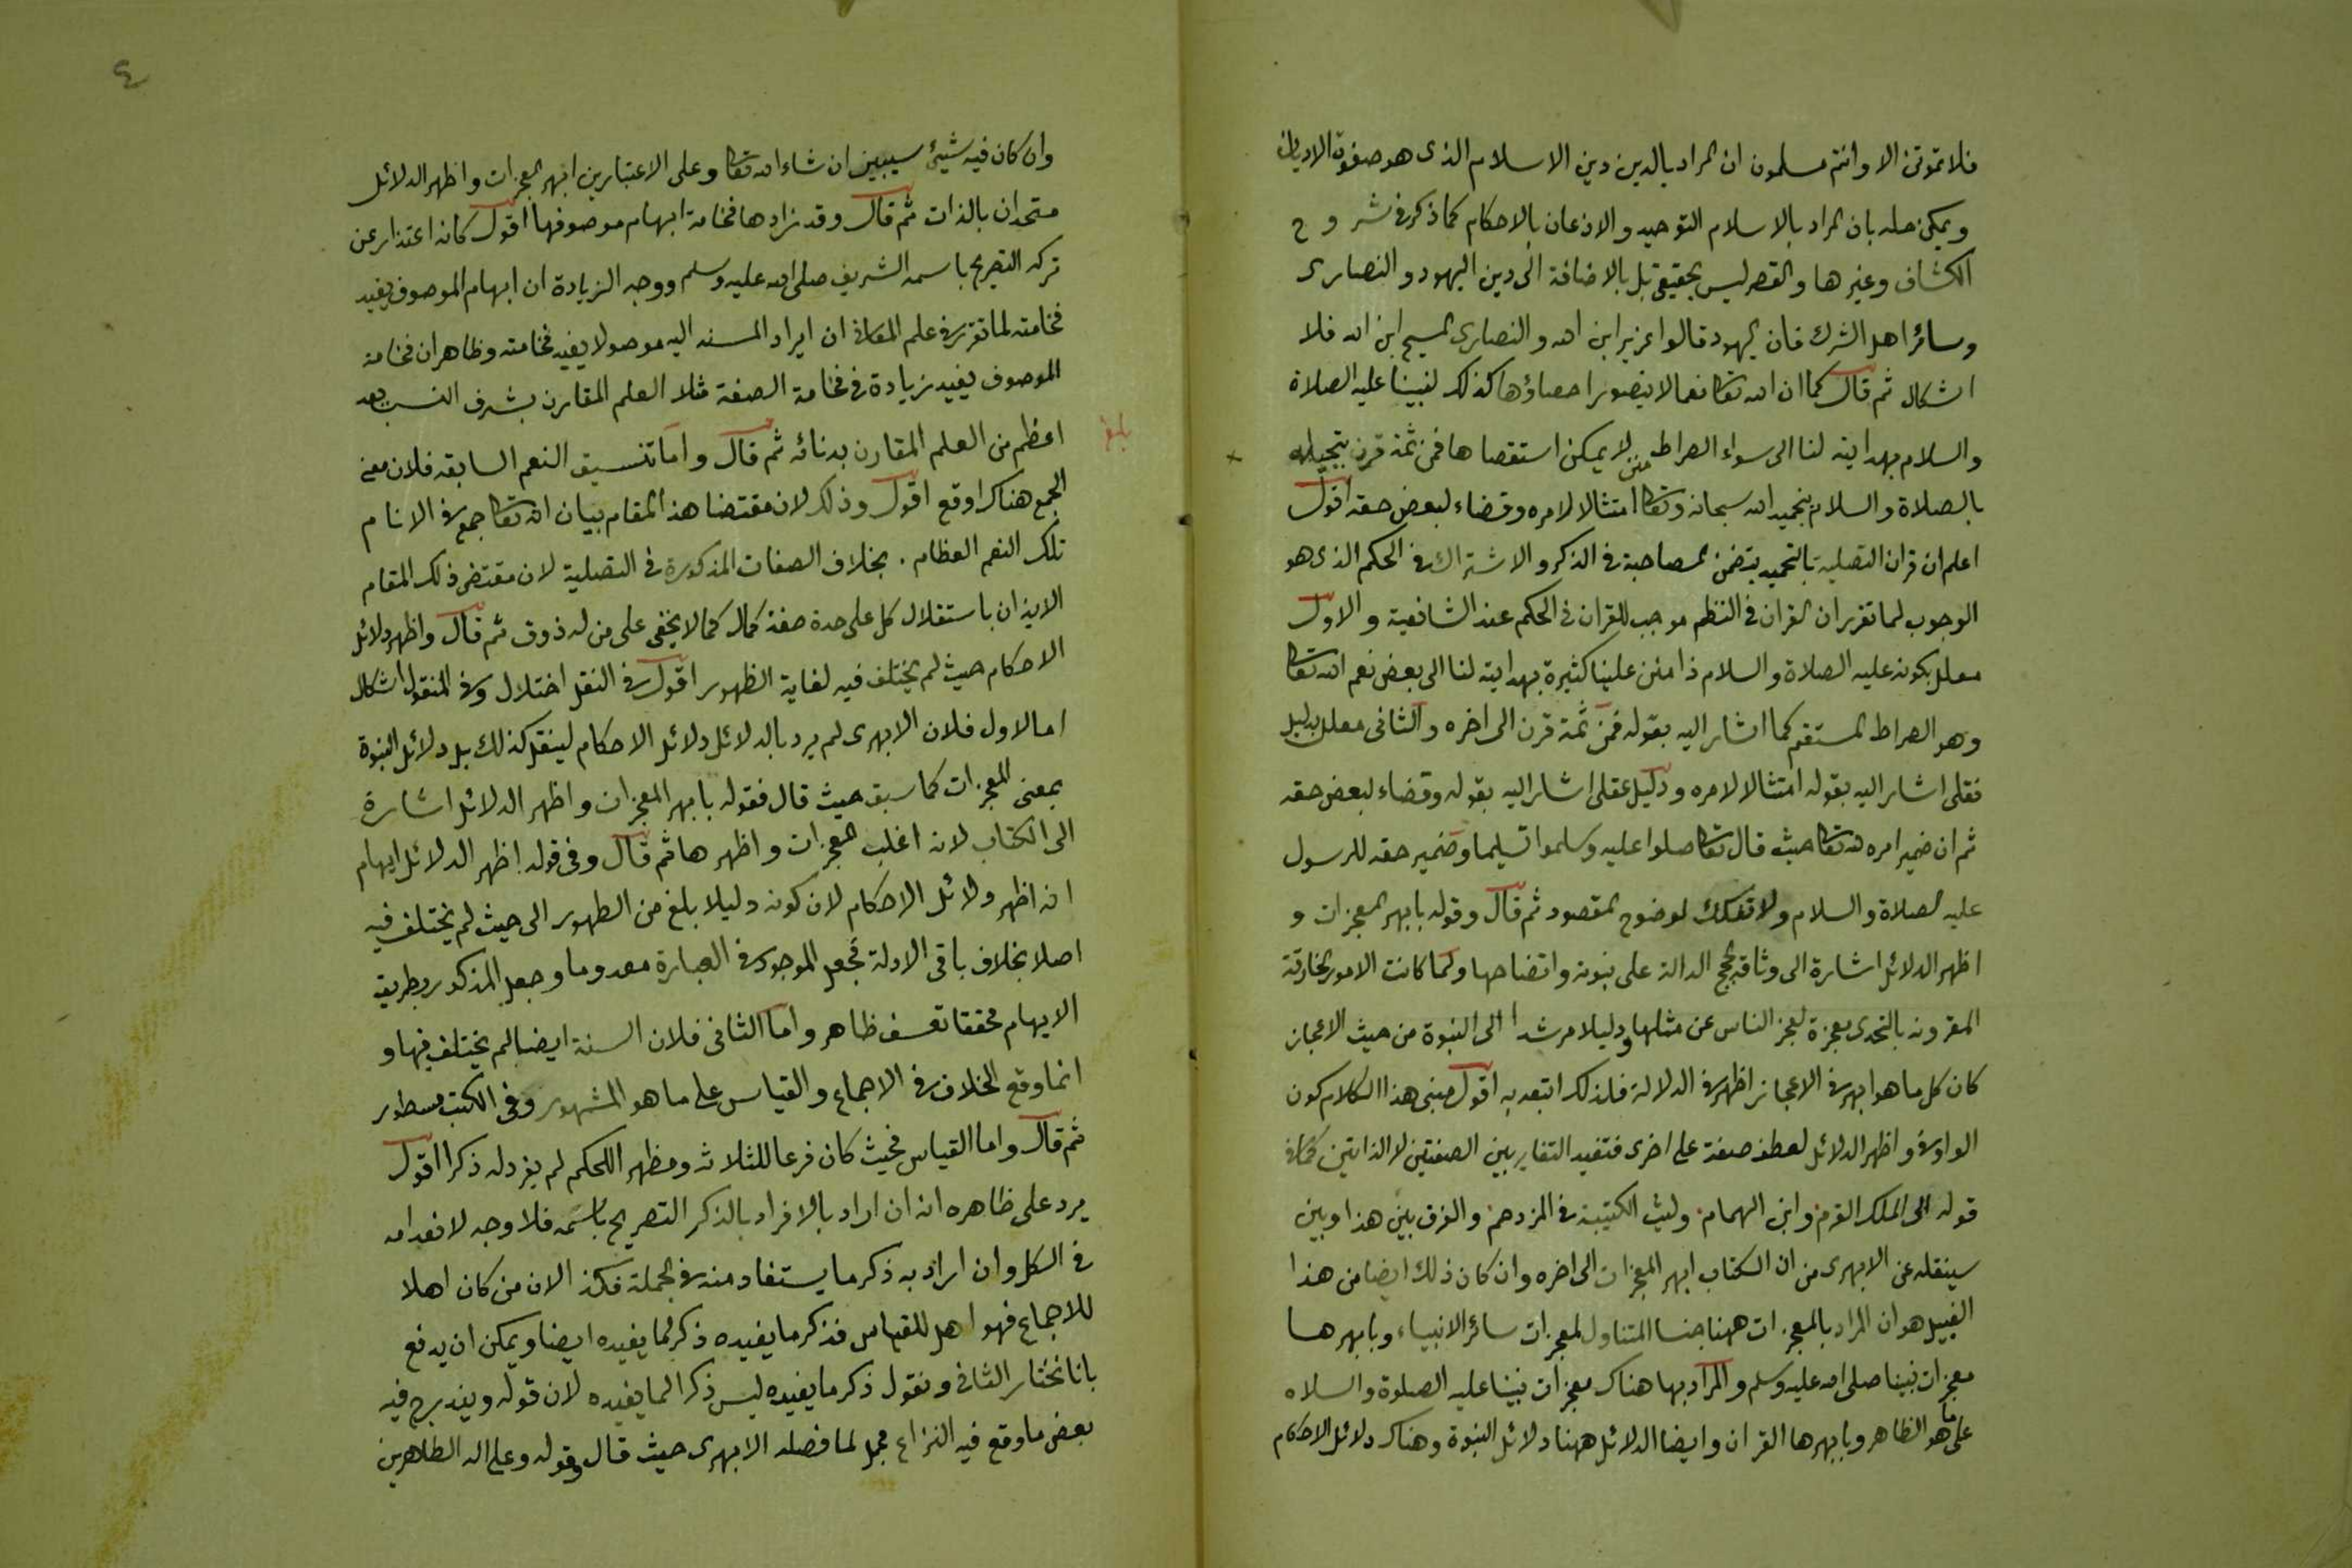 فلا تموتن الا وانتم مسلمون ان المراد بالدين دين الاسلام الذى هو صفوة الاديان
ويمكن حله بان المراد بالاسلام التوحيد والاذعان بالاحكام كما ذكر فى شروح
الكشاف وغيرها والقصر ليس بحقيقى بل بالاضافة الى دين اليهود والنصارى
وسائر اهل الشرك فان اليهود قالوا عزير ابن الله والنصارى المسيح ابن الله فلا
اشكال ثم قال كما ان لله تعا نعما لا يتصور احصاؤها كذلك لنبينا عليه الصلاة
والسلام بهدايته لنا الى سواء الصراط منن لا يمكن استقصاها فمن ثمة قرن
بالصلاة والسلام بتحميد الله سبحانه وتعا امتثالا لامره وقضاء لبعض حقه اقول
اعلم ان قران التصلية بالتحميد يتضمن المصاحبة فى الذكر والاشتراك فى الحكم الذى هو
الوجوب لما تقرر ان القران فى النظم موجب للقران فى الحكم عند الشافعية والاول
معلل بكونه عليه الصلاة والسلام ذا منن علينا كثيرة بهدايته لنا الى بعض نعم الله تعا
وهو الصراط المستقيم كما اشار اليه بقوله فمن ثمة قرن الى اخره والثانى معلل بدليل
نقلى اشار اليه بقوله امتثالا لامره ودليل عقلى اشار اليه بقوله وقضاء لبعض حقه
ثم ان ضمير امره لله تعا حيث قال تعا صلوا عليه وسلموا تسليما وضمير حقه للرسول
عليه الصلاة والسلام ولا تفكك لوضوح المقصود ثم قال وقوله بابهر المعجزات و
اظهر الدلائل اشارة الى وثاقة الحجج الدالة على نبوته واتضاحها ولما كانت الامور الخارقة
المقرونة بالتحدى معجزة لعجز الناس عن مثلها ودليلا مرشدا الى النبوة من حيث الاعجاز
كان كل ما هو ابهر فى الاعجاز اظهر فى الدلالة فلذلك اتبعه به اقول مبنى هذا الكلام كون
الواو فى واظهر الدلائل لعطف صفة على اخرى فتفيد التغاير بين الصفتين لا الذاتين كما فى
قوله الى الملك القرم وابن الهمام وليث الكتيبة فى المزدحم والفرق بين هذا وبين
سينقله عن الابهرى من ان الكتاب ابهر المعجزات الى اخره وان كان ذلك ايضا من هذا
القبيل هو ان المراد بالمعجزات ههنا جنسا المتناول لمعجزات سائر الانبياء وبابهرها
معجزات نبينا صلى الله عليه وسلم والمراد بها هناك معجزات نبينا عليه الصلوة والسلام
على ما هو الظاهر وبابهرها القران وايضا الدلائل ههنا دلائل النبوة وهناك دلائل الاحكام
٤
وان كان فيه شيئ سيبين ان شاء الله تعا وعلى الاعتبارين ابهر المعجزات واظهر الدلائل
متحدان بالذات ثم قال وقد زادها فخامة ابهام موصوفها اقول كانه اعتذار عن
تركه التصريح باسمه الشريف صلى الله عليه وسلم ووجه الزيادة ان ابهام الموصوف يفيد
فخامته لما تقرر فى علم المعانى ان ايراد المسند اليه موصولا يفيد فخامته وظاهر ان فخامة
الموصوف يفيد زيادة فى فخامة الصفة مثلا العلم المقارن بشرف النسب يعد
اعظم من العلم المقارن بدنائه ثم قال واما تنسيق النعم السابقه فلان معنى
بلغ
الجمع هناك اوقع اقول وذلك لان مقتضا هذا المقام بيان انه تعا جمع فى الانام
تلك النعم العظام . بخلاف الصفات المذكورة فى التصلية لان مقتضى ذلك المقام
الايذان باستقلال كل على حدة صفة كمال كما لا يخفى على من له ذوق ثم قال واظهر دلائل
الاحكام حيث لم يختلف فيه لغاية الظهور اقول فى النقل اختلال وفى المنقول اشكال
اما الاول فلان الابهرى لم يرد بالدلائل دلائل الاحكام لينقل كذلك بل دلائل النبوة
بمعنى المعجزات كما سبق حيث قال فقوله بابهر المعجزات واظهر الدلائل اشارة
الى الكتاب لانه اغلب المعجزات واظهرها ثم قال وفى قوله اظهر الدلائل ايهام
انه اظهر دلائل الاحكام لان كونه دليلا بلغ من الظهور الى حيث لم يختلف فيه
اصلا بخلاف باقى الادلة فجعل الموجود فى العبارة معدوما وجعل المذكور بطريق
الايهام محققا تعسف ظاهر واما الثانى فلان السنة ايضا لم يختلف فيها و
انما وقع الخلاف فى الاجماع والقياس على ما هو المشهور وفى الكتب مسطور
ثم قال واما القياس فحيث كان فرعا للثلاثه ومظهر اللحكم لم يفرد له ذكرا اقول
يرد على ظاهره انه ان اراد بالافراد بالذكر التصريح باسمه فلا وجه لانعدامه
فى الكل وان اراد به ذكر ما يستفاد منه فى الجملة الان من كان اهلا
للاجماع فهو اهل للقياس فذكر ما يفيده ذكر لما يفيده ايضا ويمكن ان يدفع
بانا نختار الثانى ونقول ذكر ما يفيده ليس ذكرا لما يفيده لان قوله ويندرج فيه
بعض ما وقع فيه النزاع مجمل لما فصله الابهرى حيث قال وقوله وعلى اله الطاهرين